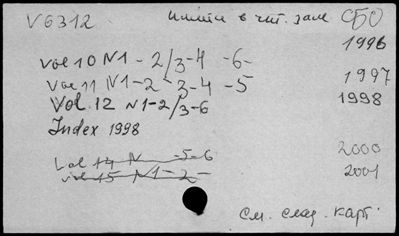 V6312 имеем в чит. зале СБО
vol 10 N1 - 2/3-4 -6- 1996
Vol 11 N1-2-3-4-5 1997
Vol. 12 N1-2/3-6 1998
Index 1998
Vol 14 N -5-6 2000
vol 15 N1-2- 2001
См. след. карт.